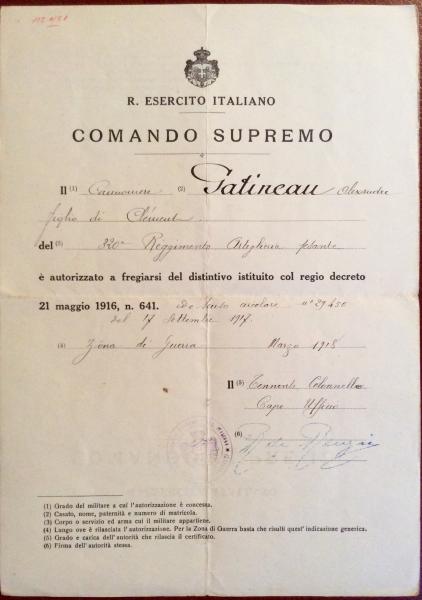 R. ESERCITO ITALIANO
COMANDO SUPREMO
Il (1) Cannoniere (2) Gatineau Alexandre
figlio di Clément
del (3) 320° Reggimento Artiglieria pesante
è autorizzato a fregiarsi del distintivo istituito col regio decreto
21 maggio 1916, n. 641. circolare n° 29450
del 17 Settembre 1917
(4) Zona di Guerra Marzo 1918
Il (5) Tenente Colonnello
Capo Ufficio
(6)
(1) Grado del militare a cui l'autorizzazione è concessa.
(2) Casato, nome, paternità e numero di matricola.
(3) Corpo o servizio ed arma cui il militare appartiene.
(4) Luogo ove è rilasciata l'autorizzazione. Per la Zona di Guerra basta che risulti quest'indicazione generica.
(5) Grado e carica dell'autorità che rilascia il certificato.
(6) Firma dell'autorità stessa.